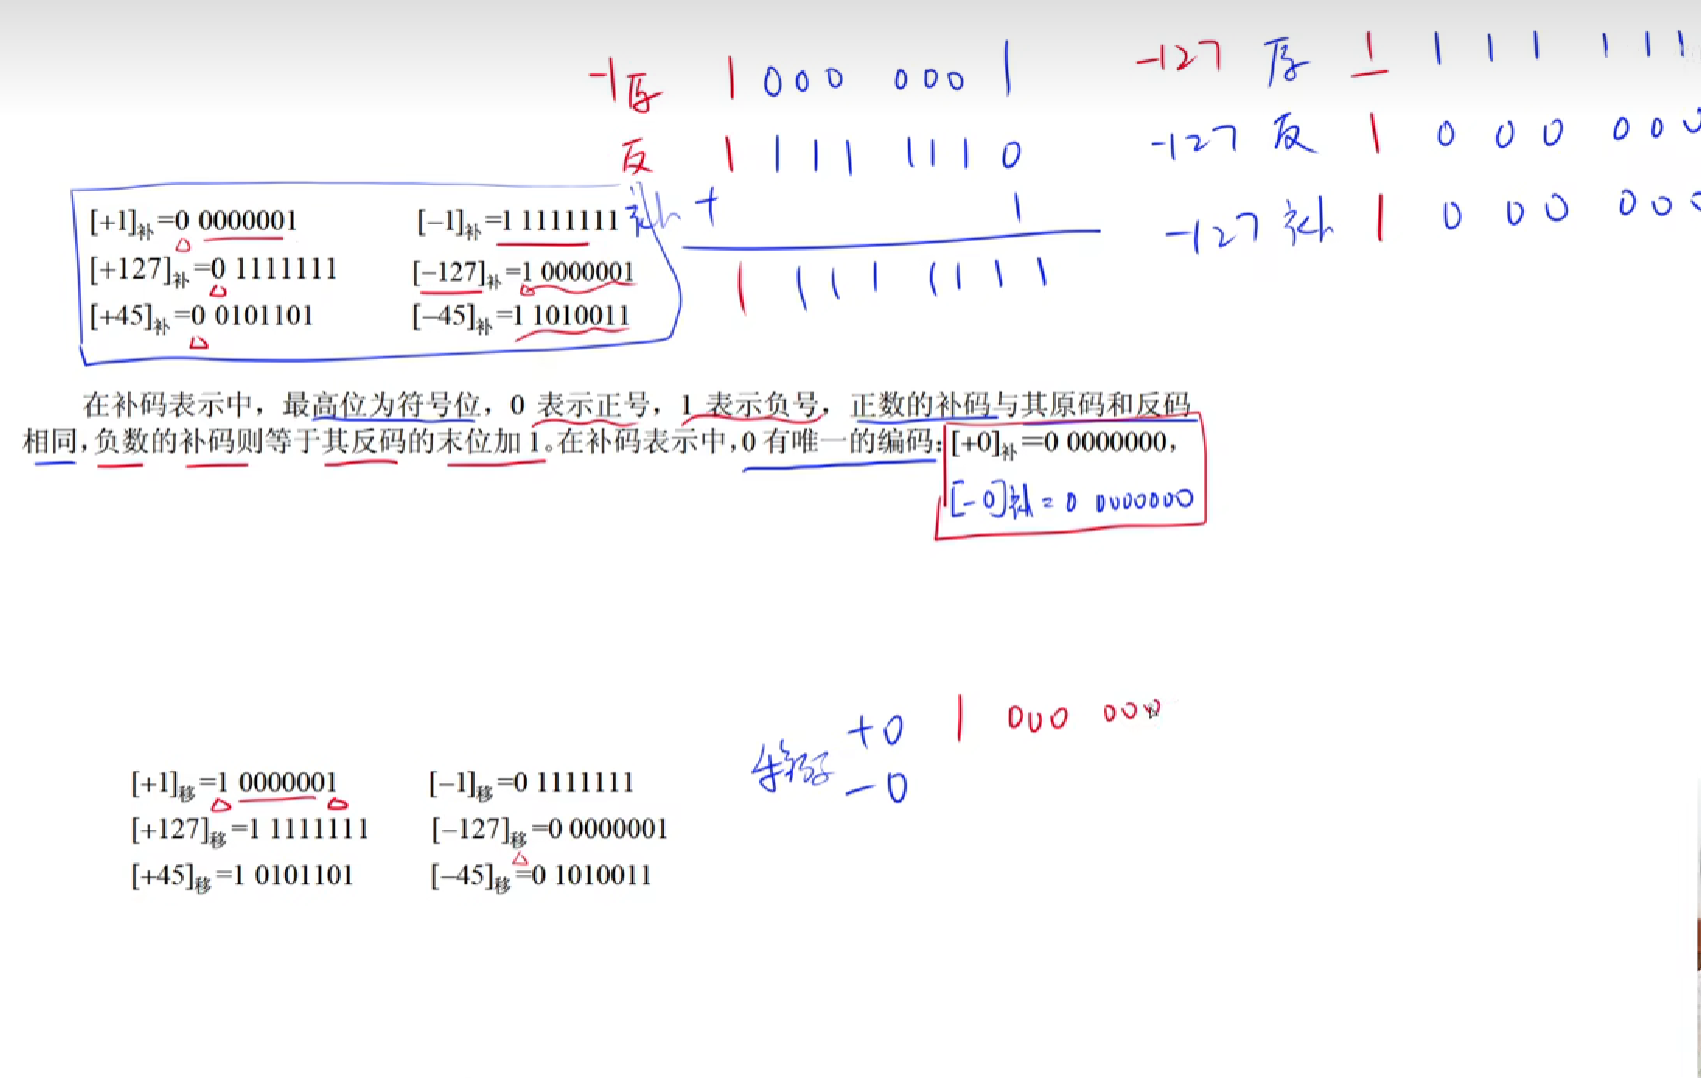 -1原 1 000 000 1
反 1 111 1110
补 + 1
1 111 1111
-127 原 1 1 1 1 1 1 1
-127 反 1 0 0 0 0 0 0
-127 补 1 0 0 0 0 0 0
[+1]补=0 0000001 [−1]补=1 1111111
[+127]补=0 1111111 [−127]补=1 0000001
[+45]补=0 0101101 [−45]补=1 1010011
在补码表示中，最高位为符号位，0 表示正号，1 表示负号，正数的补码与其原码和反码
相同，负数的补码则等于其反码的末位加 1。在补码表示中，0 有唯一的编码：[+0]补=0 0000000，
[-0]补=0 0000000
+0 1 000 000
-0
[+1]移=1 0000001 [−1]移=0 1111111
[+127]移=1 1111111 [−127]移=0 0000001
[+45]移=1 0101101 [−45]移=0 1010011